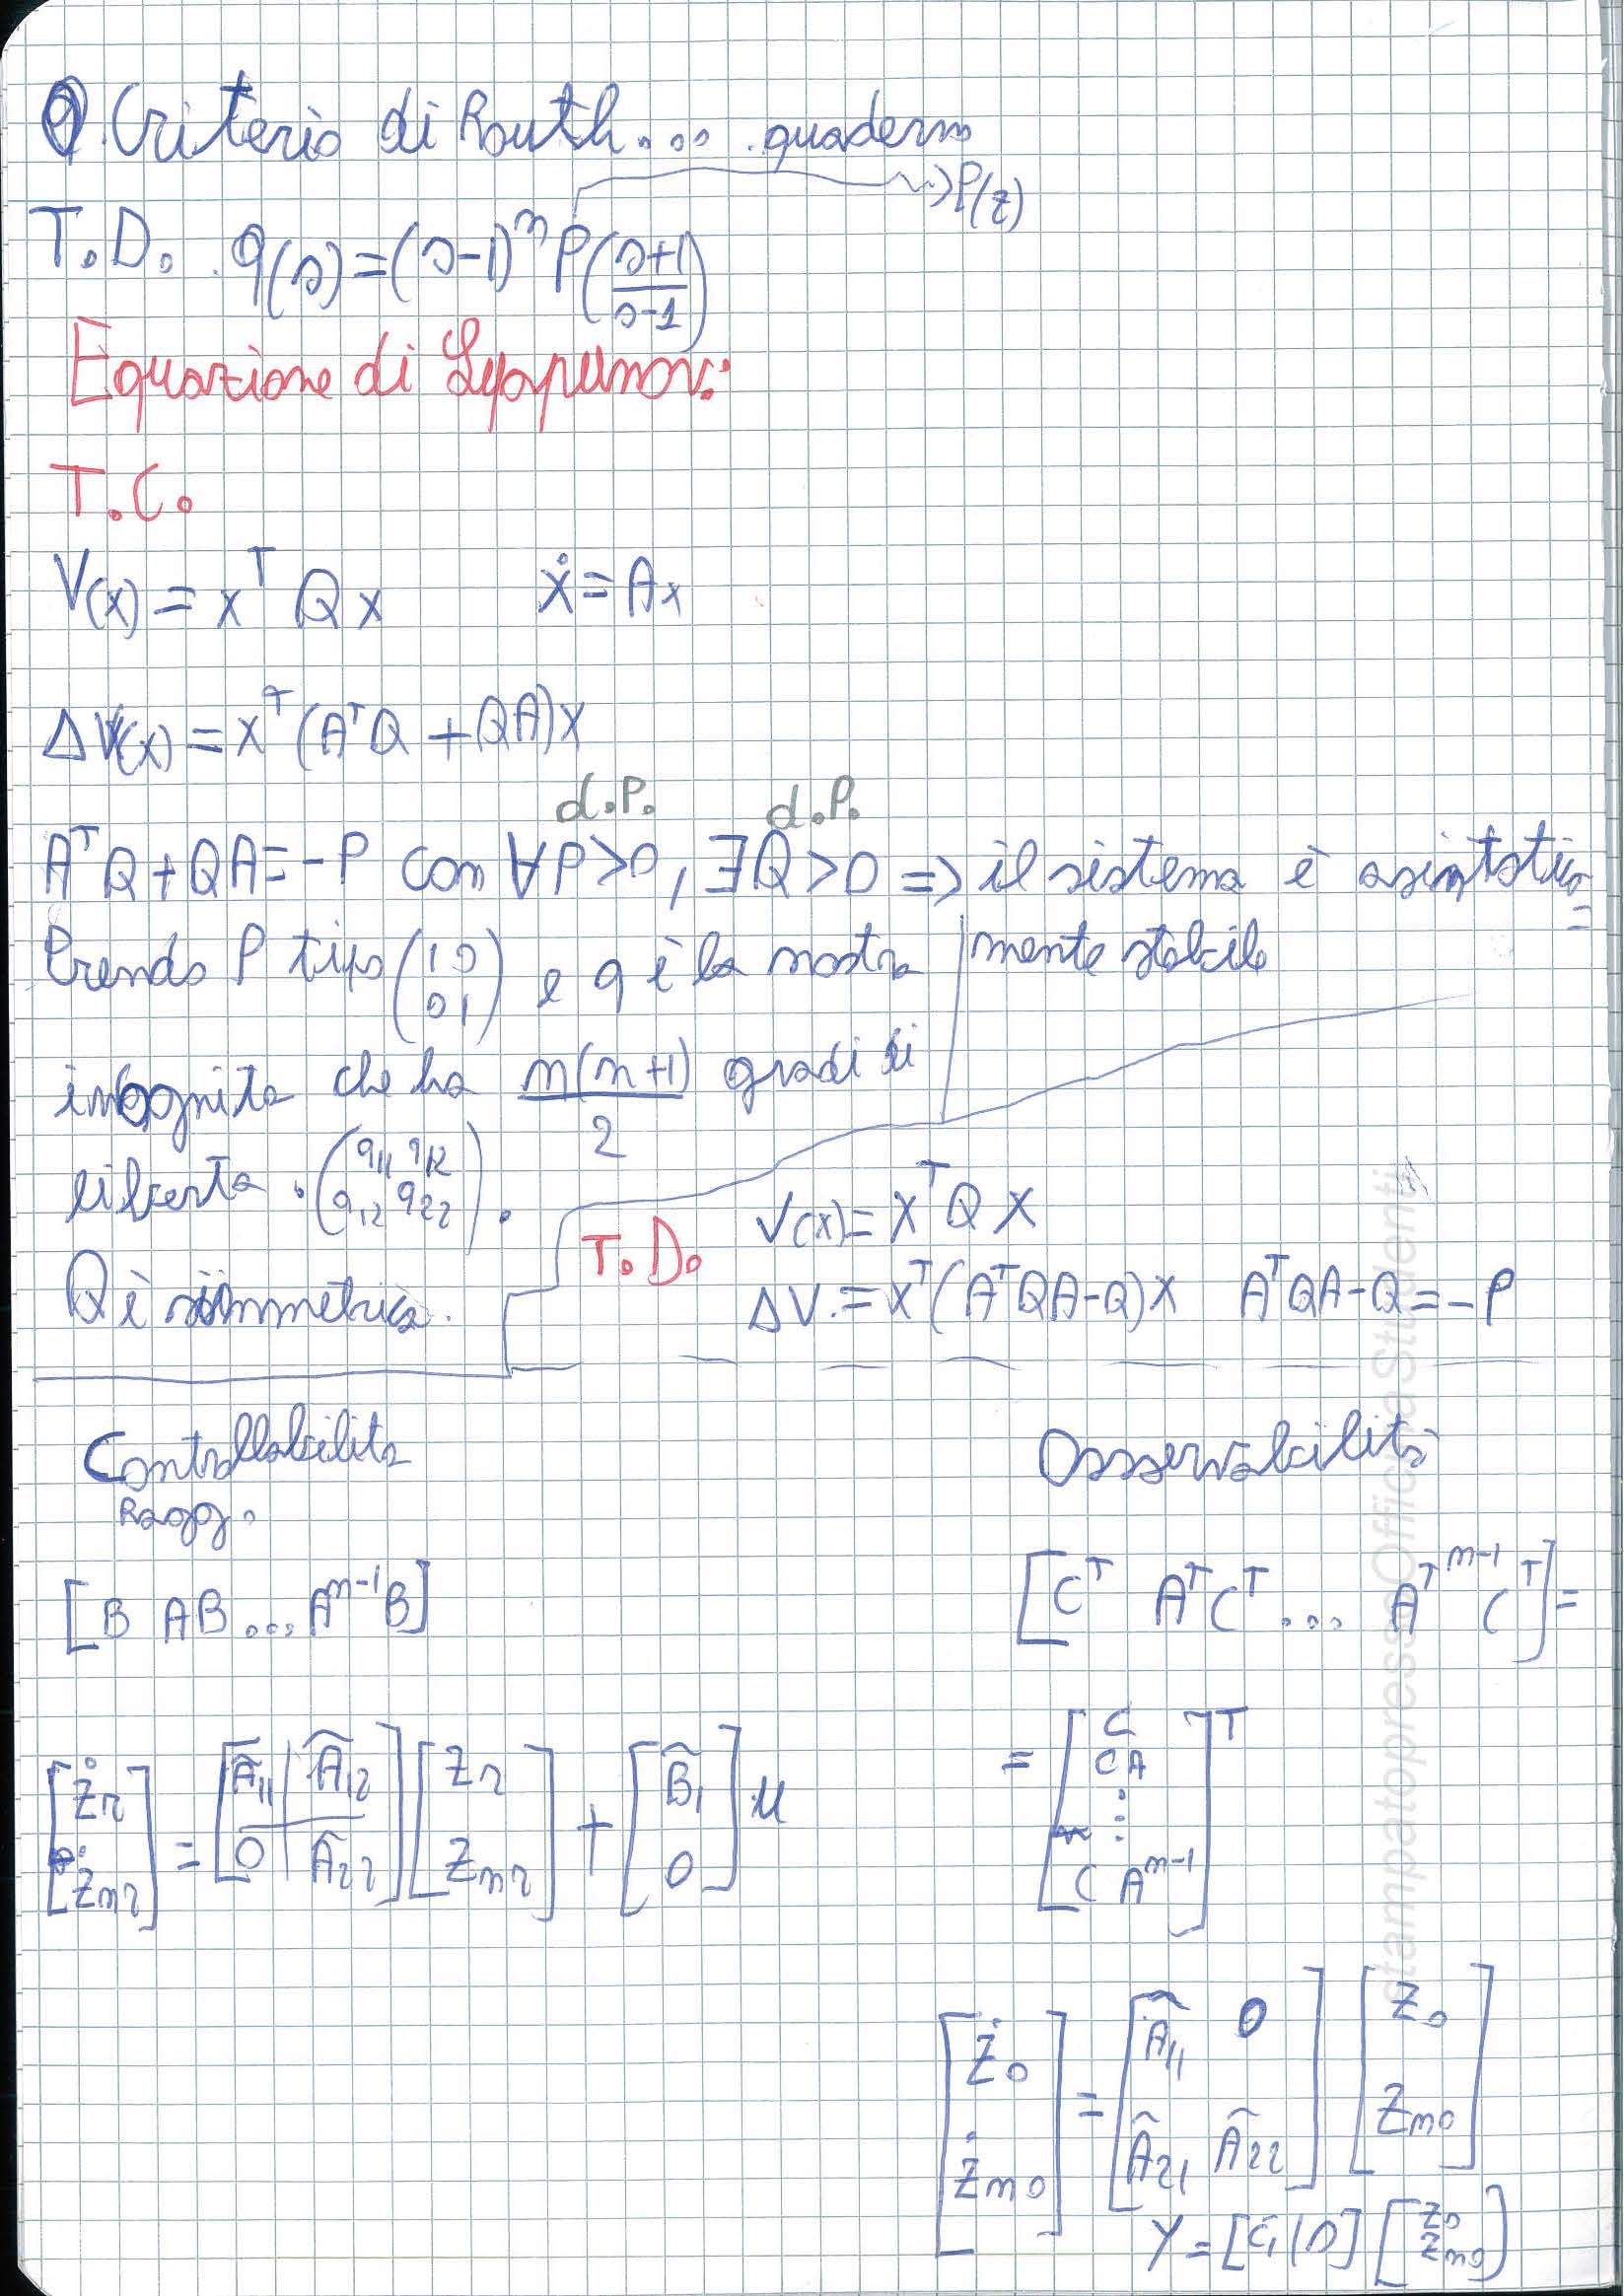 Q. Criterio di Routh... quaderno
T.D. q(s)=(s-1)^n P((s+1)/(s-1)) → P(z)
Equazione di Lyapunov:
T.C.
V(x) = x^T Q x    ẋ = Ax
ΔV(x) = x^T (A^T Q + QA)x
d.P.    d.P.
A^T Q + QA = -P con ∀P>0, ∃Q>0 => il sistema è asintotica=
mente stabile
Prendo P tipo (1 0
0 1) e q è la nostra
incognita che ha n(n+1)/2 gradi di
liberta. (q11 q12
q12 q22).
Q è simmetrica.
T.D.
V(x) = x^T Q x
ΔV. = x^T (A^T QA-Q)x    A^T QA-Q = -P
Controllabilita
Ragg.
[B AB ... A^{n-1}B]
[ż_r
ż_nr] = [Â11 | Â12
0 | Â22] [z_r
z_nr] + [B̂1
0] u
Osservabilità
[C^T A^T C^T ... A^T^{n-1} C^T] =
= [C
CA
⋮
C A^{n-1}]^T
[ż_o
ż_no] = [Â11 0
Â21 Â22] [z_o
z_no]
y = [C1 | 0] [z_o
z_no]
stampatopressoOfficinaStudenti